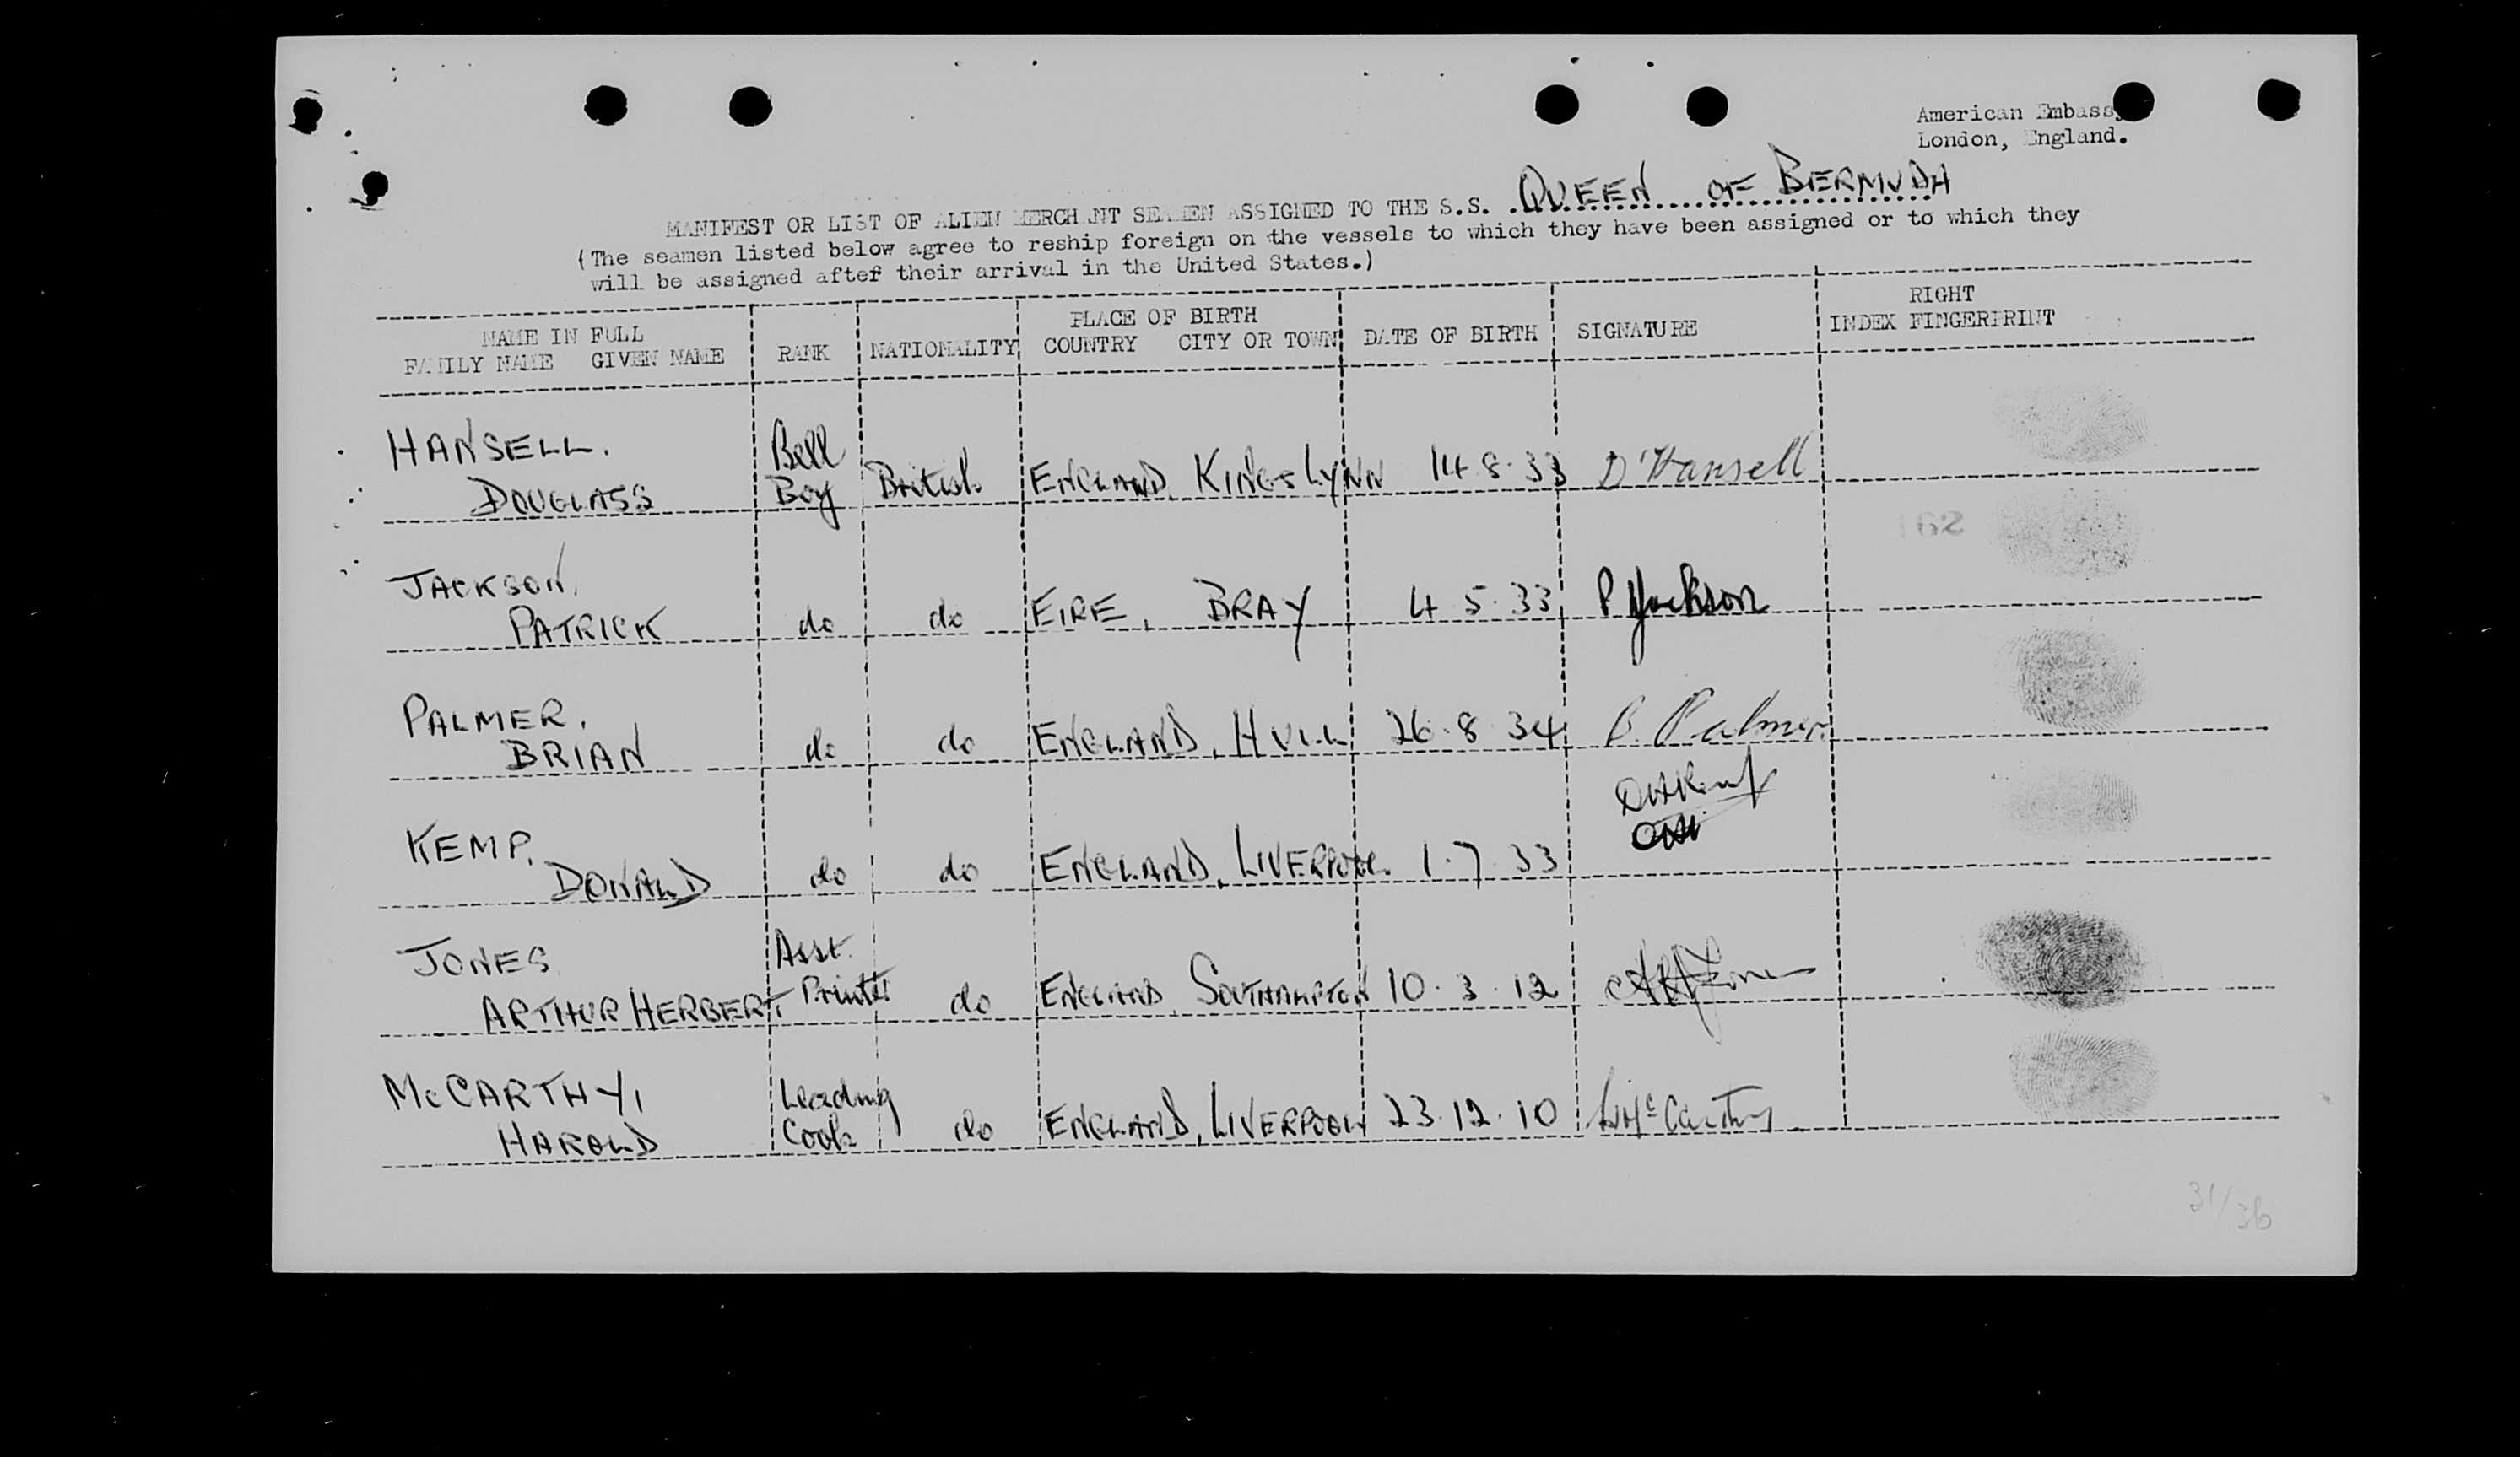 American Embassy
London, England.
MANIFEST OR LIST OF ALIEN MERCHANT SEAMEN ASSIGNED TO THE S.S. QUEEN OF BERMUDA
(The seamen listed below agree to reship foreign on the vessels to which they have been assigned or to which they
will be assigned after their arrival in the United States.)
NAME IN FULL PLACE OF BIRTH RIGHT
FAMILY NAME GIVEN NAME RANK NATIONALITY COUNTRY CITY OR TOWN DATE OF BIRTH SIGNATURE INDEX FINGERPRINT
HANSELL. Bell
DOUGLASS Boy British ENGLAND KINGS LYNN 14.8.33 D'Hansell
JACKSON,
PATRICK do do EIRE, BRAY 4.5.33 P Jackson
PALMER,
BRIAN do do ENGLAND, HULL 26.8.34 B. Palmer
KEMP, DHKemp
DONALD do do ENGLAND, LIVERPOOL 1.7.33
JONES Asst.
ARTHUR HERBERT Printer do ENGLAND, SOUTHAMPTON 10.3.12 AHJones
McCARTHY, Leading
HAROLD Cook do ENGLAND, LIVERPOOL 23.12.10 H McCarthy
31/36